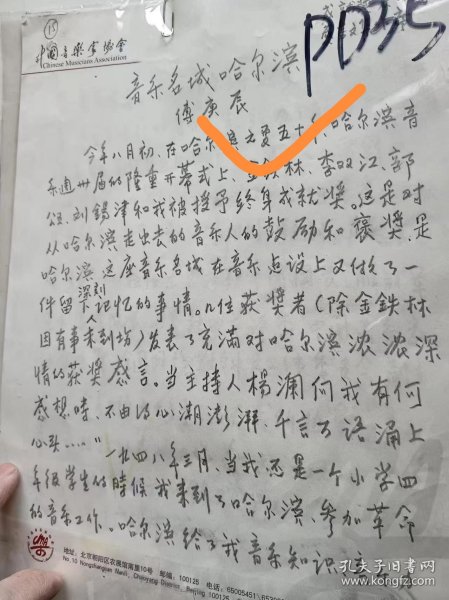 15
中国音乐家协会
Chinese Musicians Association
PD35
音乐名城哈尔滨
傅庚辰
今年八月初，在哈尔滨之夏五十年、哈尔滨音
乐週卅届的隆重开幕式上，金铁林、李双江、郭
颂、刘錫津和我被授予终身成就奖。这是对
从哈尔滨走出去的音乐人的鼓励和褒奖，是
哈尔滨这座音乐名城在音乐建设上又做了一
件留下深刻记忆的事情。几位获奖者（除金鉄林
因有事未到场）发表了充满对哈尔滨浓浓深
情的获奖感言。当主持人楊澜问我有何
感想時，不由得心潮澎湃，千言万语涌上
心头……"
一九四八年三月，当我还是一个小学四
年级学生的時候我来到了哈尔滨，参加革命
的音乐工作。哈尔滨给了我音乐知识
地址：北京朝阳区农展馆南里10号
No.10 Nongzhanguan Nanli, Chaoyang District, Beijing 100125
邮编：100125 电话：65005451
孔夫子旧书网